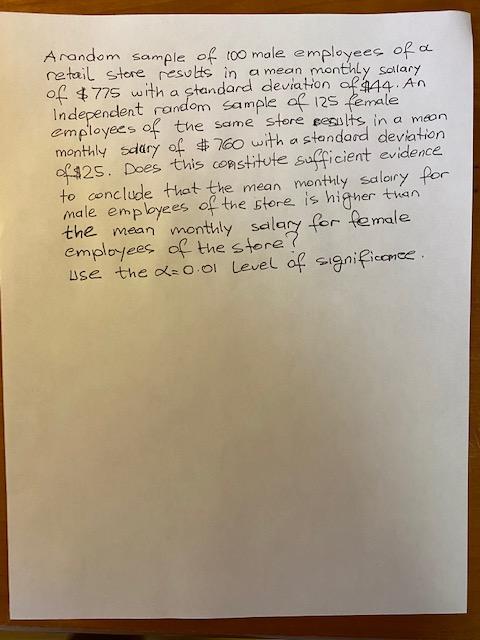 A random sample of 100 male employees of a
retail store results in a mean monthly salary
of $775 with a standard deviation of $44. An
Independent random sample of 125 female
employees of the same store results in a mean
monthly salary of $760 with a standard deviation
of $25. Does this constitute sufficient evidence
to conclude that the mean monthly salary for
male employees of the store is higher than
the mean monthly salary for female
employees of the store?
Use the α=0.01 Level of significance.